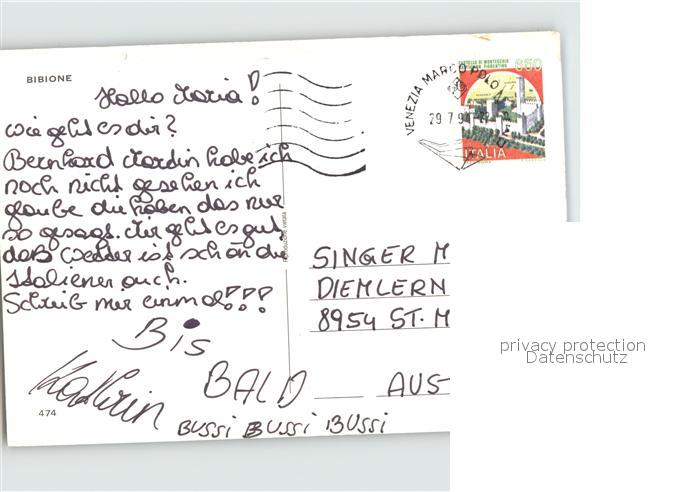 BIBIONE
Hallo Maria!
Wie geht es dir?
Bernhard Mardin habe ich
noch nicht gesehen ich
glaube die haben das nur
so gesagt. Mir geht es gut,
das Wetter ist schön die
Italiener auch.
Schreib mir einmal!!!
Bis
BALD
Kathrin
BUSSI BUSSI BUSSI
474
Riproduzione vietata
VENEZIA MARCO POLO
29.7.9
CASTELLO DI MONTECCHIO
650
ITALIA
SINGER M
DIEMLERN
8954 ST. M
AUS
privacy protection
Datenschutz